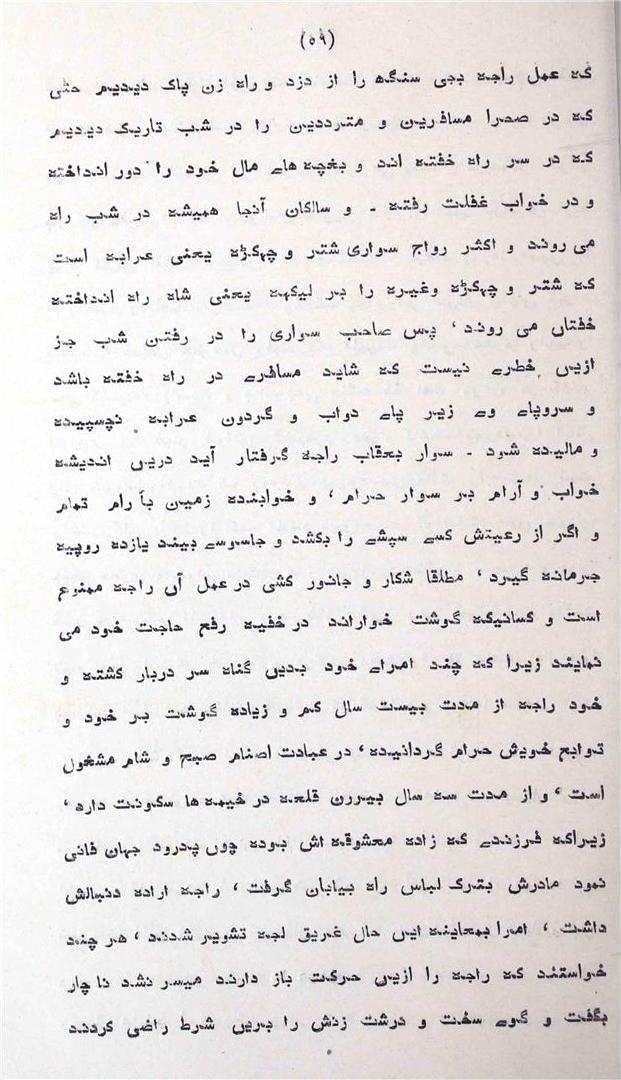 (٥٩)
که عمل راجه بجی سنگھ را از دزد و راه زن پاک دیدیم حتی
که در صحرا مسافرین و مترددین را در شب تاریک دیدیم
که در سر راه خفته اند و بغچه هاے مال خود را دور انداخته
و در خواب غفلت رفته ـ و سالکان آنجا همیشه در شب راه
می روند و اکثر رواج سواری شتر و چهکڑه یعنی عرابه است
که شتر و چهکڑه وغیره را بر لیکهه یعنی شاه راه انداخته
خفتان می روند ، پس صاحب سواری را در رفتن شب جز
ازیں خطرے نیست که شاید مسافرے در راه خفته باشد
و سروپاے وے زیر پاے دواب و گردون عرابه نچسپیده
و مالیده شود ـ سوار بعقاب راجه گرفتار آید دریں اندیشه
خواب و آرام بر سوار حرام ، و خوابنده زمین بآرام تمام
و اگر از رعیتش کسے سپشے را بکشد و جاسوسے بیند یازده روپیه
جرمانه گیرد ، مطلقا شکار و جانور کشی در عمل آں راجه ممنوع
است و کسانیکه گوشت خواراند در خفیه رفع حاجت خود می
نمایند زیرا که چند امراے خود بدیں گناه سر دربار کشته و
خود راجه از مدت بیست سال کم و زیاده گوشت بر خود و
توابع خویش حرام گردانیده ، در عبادت اصنام صبح و شام مشغول
است ، و از مدت سه سال بیررن قلعه در خیمه ها سکونت دارد ،
زیراکه فرزندے که زاده معشوقه اش بوده چوں پدرود جهان فانی
نمود مادرش بترک لباس راه بیابان گرفت ، راجه اراده دنبالش
داشت ، امرا بمعاینه ایں حال غریق لجه تشویر شدند ، هر چند
خواستند که راجه را ازیں حرکت باز دارند میسر نشد نا چار
بگفت و گوے سخت و درشت زنش را بریں شرط راضی کردند